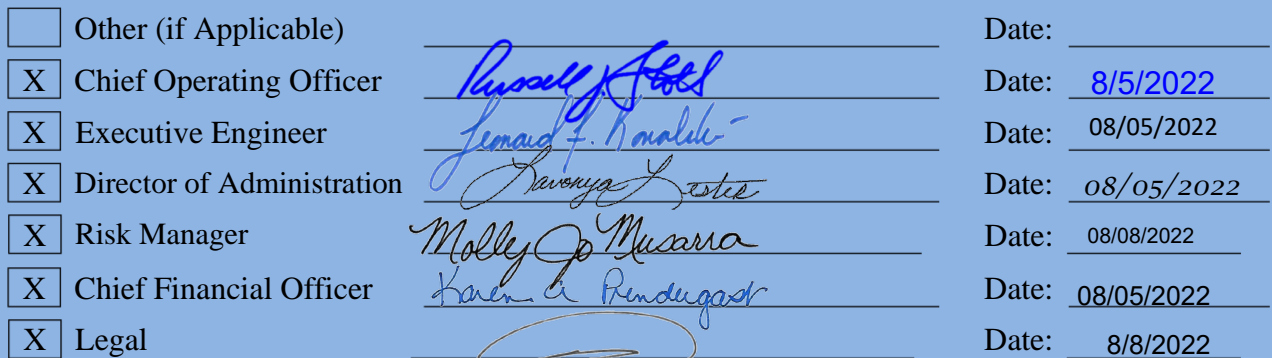 Other (if Applicable) Date:
X Chief Operating Officer Russell J. Date: 8/5/2022
X Executive Engineer Leonard F. Date: 08/05/2022
X Director of Administration Lavonya Lester Date: 08/05/2022
X Risk Manager Molly Jo Musarra Date: 08/08/2022
X Chief Financial Officer Karen A Prendergast Date: 08/05/2022
X Legal Date: 8/8/2022